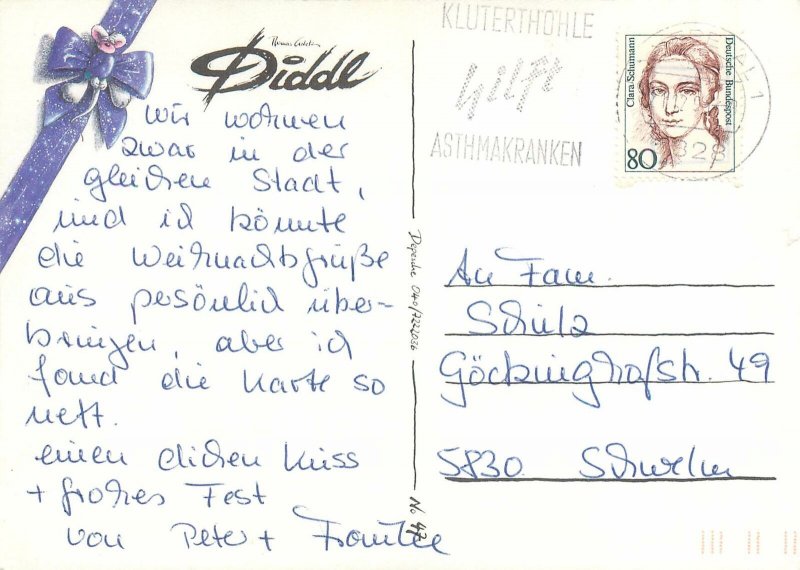 Diddl
wir wohnen
zwar in der
gleichen Stadt,
und ich könnte
die Weihnachtsgrüße
aus persönlich über-
bringen, aber ich
fand die Karte so
nett.
einen dicken Kuss
+ frohes Fest
von Peter +
KLUTERTHÖHLE
hilft
ASTHMAKRANKEN
Clara Schumann
Deutsche Bundespost
80
1
328
Depesche 040/7222036
No 47
An Fam.
Schulz
Göckinghofstr. 49
5830 Schwelm